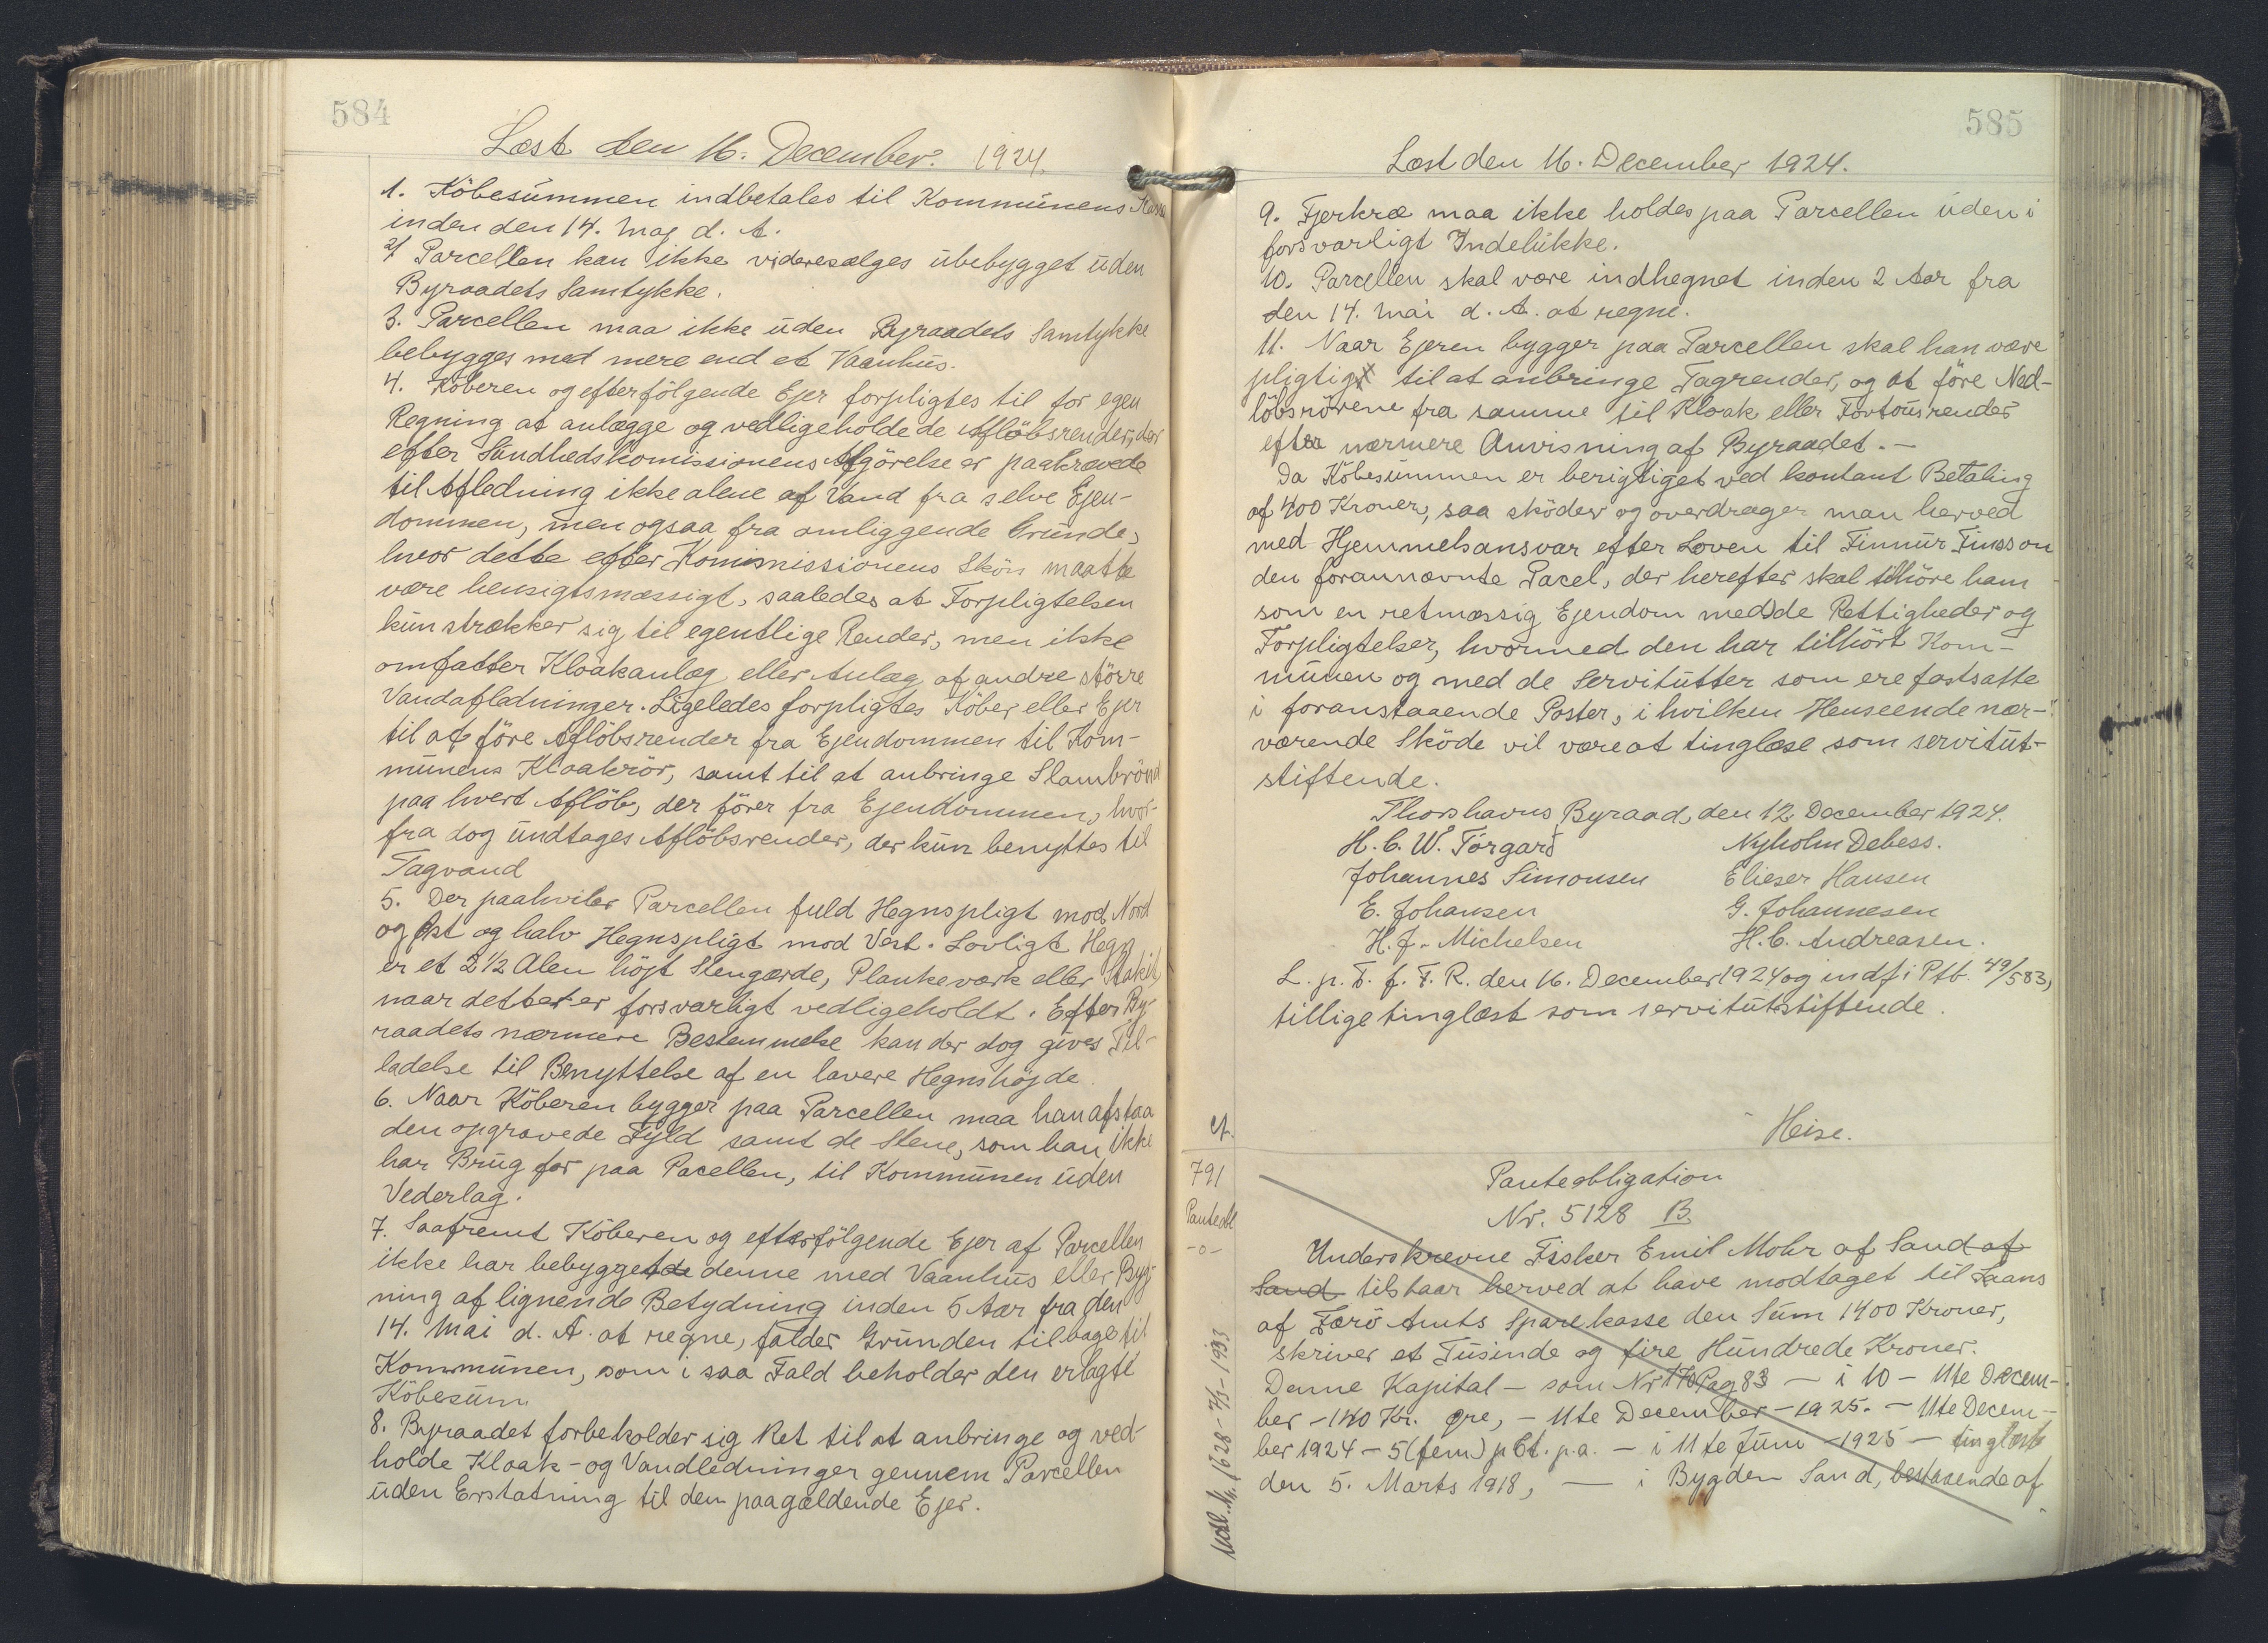 584
Læst den 16. December. 1924.
1. Köbesummen indbetales til Kommunens Kasse
inden den 14. Maj d. A.
2/ Parcellen kan ikke videresælges ubebygget uden
Byraadets Samtykke.
3. Parcellen maa ikke uden Byraadets Samtykke
bebygges med mere end et Vaanhus.
4. Köberen og efterfölgende Ejer forpligtes til for egen
Regning at anlægge og vedligeholde de Aflöbsrender, der
efter Sundhedskomissionens Afgörelse er paakrævede
til Afledning ikke alene af Vand fra selve Ejen-
dommen, men ogsaa fra omliggende Grunde,
hvor dette efter Kommissionens Skön maatte
være hensigtsmæssigt, saaledes at Forpligtelsen
kun strækker sig til egentlige Render, men ikke
omfatter Kloakanlæg eller Anlæg af andre större
Vandafledninger. Ligeledes forpligtes Köber eller Ejer
til at före Aflöbsrender fra Ejendommen til Kom-
munens Kloakrör, samt til at anbringe Slambrönd
paa hvert Aflöb, der förer fra Ejenkommen, hvor-
fra dog undtages Aflöbsrender, der kun benyttes til
Tagvand
5. Der paahviler Parcellen fuld Hegnspligt mod Nord
og Øst og halv Hegnspligt mod Vest. Lovligt Hegn
er et 2 1/2 Alen höjt Stengærde, Plankeværk eller Stakit,
naar dettet er forsvarligt vedligeholdt. Efter By-
raadets nærmere Bestemmelse kan der dog gives Til-
ladelse til Benyttelse af en lavere Hegnshöjde.
6. Naar Köberen bygger paa Parcellen maa han afstaa
den opgravede Fyld samt de Stene, som han ikke
har Brug for paa Pacellen, til Kommunen uden
Vederlag.
7. Saafremt Köberen og efterfölgende Ejer af Parcellen
ikke har bebyggetde denne med Vaanhus eller Byg-
ning af lignende Betydning inden 5 Aar fra den
14. Mai d. A. at regne, falder Grunden tilbage til
Kommunen, som i saa Fald beholder den erlagte
Köbesum
8. Byraadet forbeholder sig Ret til at anbringe og ved-
holde Kloak- og Vandledninger gennem Parcellen
uden Erstatning til den paagældende Ejer.
585
Læst den 16. December 1924.
9. Fjerkræ maa ikke holdes paa Parcellen uden i
forsvarligt Indelukke.
10. Parcellen skal være indhegnet inden 2 Aar fra
den 14. Mai d. A. at regne.
11. Naar Ejeren bygger paa Parcellen skal han være
pligtig til at anbringe Tagrender, og at före Ned-
löbsrörene fra samme til Kloak eller Fortousrender
efter nærmere Anvisning af Byraadet. —
Da Köbesummen er berigtiget ved kontant Betaling
af 400 Kroner, saa sköder og overdrager man herved
med Hjemmelsansvar efter Loven til Finnur Finsson
den forannævnte Pacel, der herefter skal tilhöre ham
som en retmæssig Ejendom med de Rettigheder og
Forpligtelser, hvormed den har tilhört Kom-
munen og med de Servitutter som ere fastsatte
i foranstaaende Poster, i hvilken Henseende nær-
værende Sköde vil være at tinglæse som servitut-
stiftende.
Thorshavns Byraad, den 12 December 1924.
H. C. W. Tórgarð Nyholm Debess.
Johannes Simonsen Elieser Hansen
E. Johansen G. Johannesen
H. J. Michelsen H. C. Andreasen.
L. p. T. f. F. R. den 16. December 1924 og indf i Ptb. 49/583,
tillige tinglæst som servitutstiftende.
Heise.
791
Panteobl
-o-
Panteobligation
Nr. 5128 B
Underskrevne Fisker Emil Mohr af Sand af
Sand tilstaar herved at have modtaget til Laans
af Færö Amts Sparekasse den Sum 1400 Kroner,
skriver et Tusinde og fire Hundrede Kroner.
Denne Kapital — som Nr 170 Pag 83 — i 10 — 11te Decem-
ber — 140 Kr. Øre, — 11te December — 1925. — 11te Decem-
ber 1924 — 5 (fem) pCt. p.a. — i 11te Juni — 1925 — tinglæst
den 5. Marts 1918, — i Bygden Sand, bestaaende af